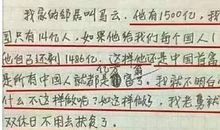 我家的邻居叫马云。他有1500亿，我
国只有14亿人，如果他给我们每个国人1亿
他自己还剩1486亿。这样他还是中国首富
是所有中国人就都是亿万富了。我就不明白
什么不这样做呢？如这样做了，我老婆就
双休日不用去捡瓷了。